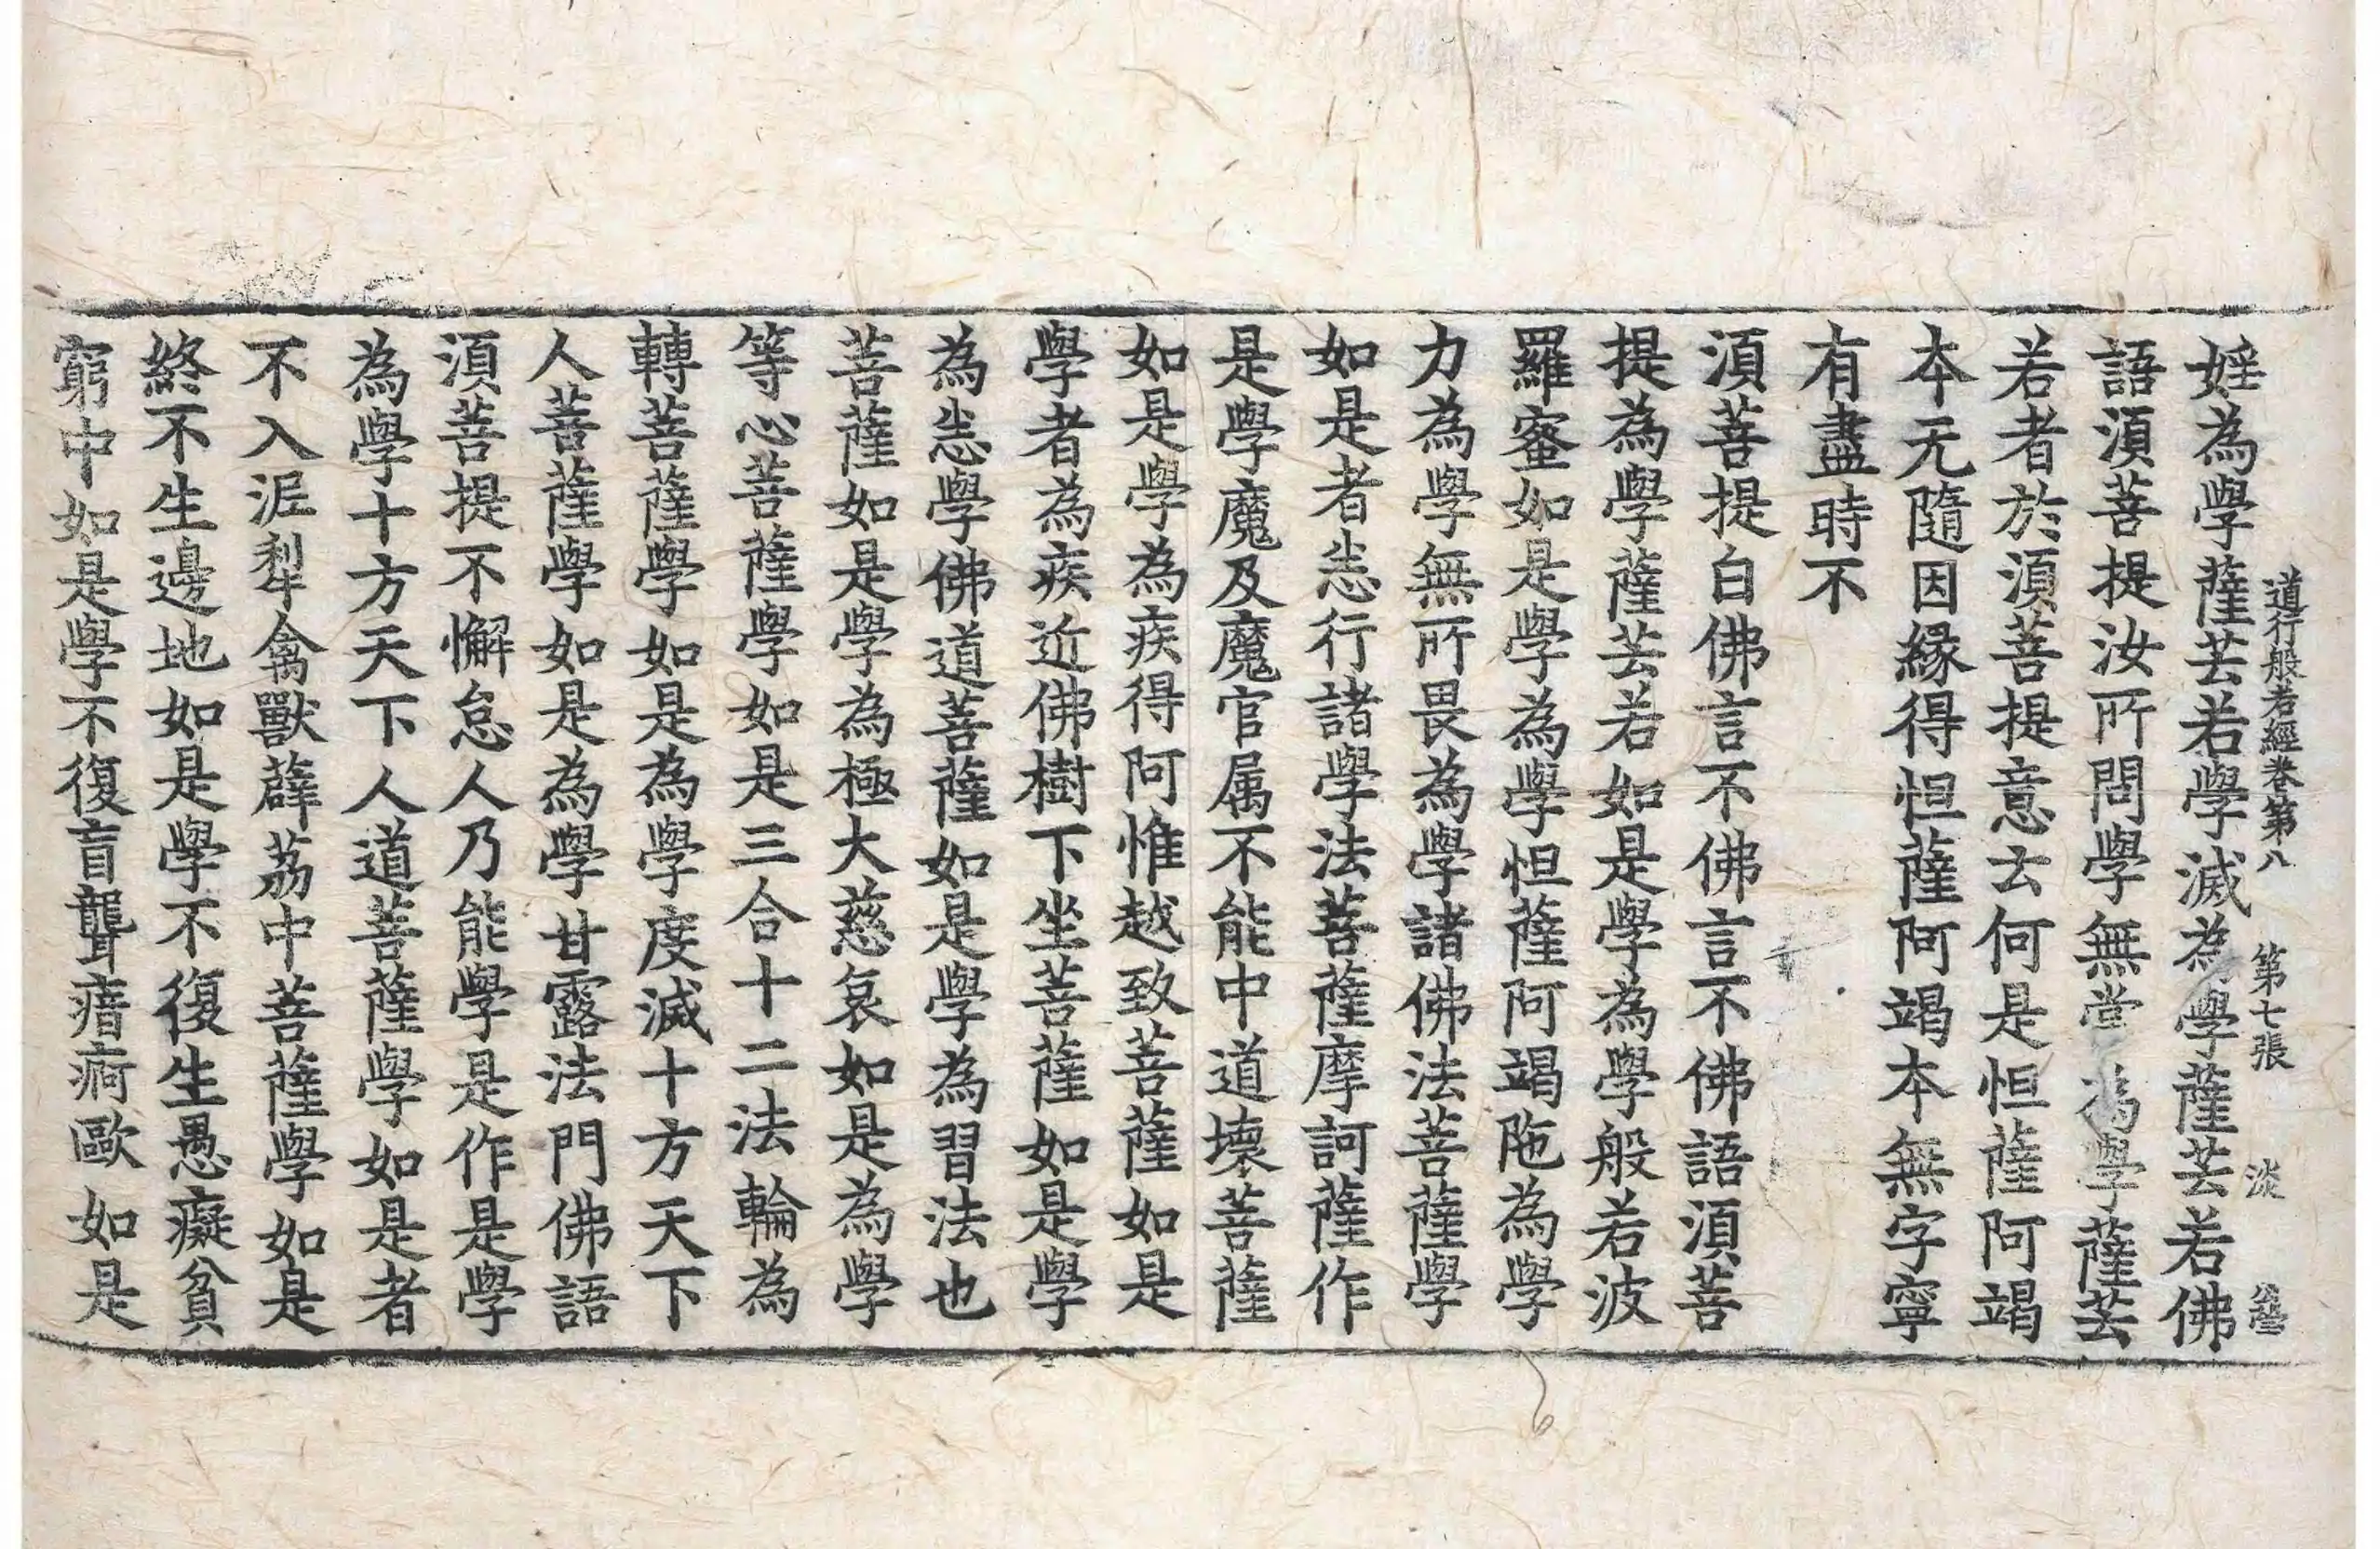 道行般若經卷第八 第七張 淡
婬為學薩芸若學滅為學薩芸若佛
語湏菩提汝所問學無常為學薩芸
若者於湏菩提意云何是怛薩阿竭
本无隨因緣得怛薩阿竭本無字寧
有盡時不
湏菩提白佛言不佛言不佛語湏菩
提為學薩芸若如是學為學般若波
羅蜜如是學為學怛薩阿竭阤為學
力為學無所畏為學諸佛法菩薩學
如是者恙行諸學法菩薩摩訶薩作
是學魔及魔官属不能中道壞菩薩
如是學為疾得阿惟越致菩薩如是
學者為疾近佛樹下坐菩薩如是學
為恙學佛道菩薩如是學為習法也
菩薩如是學為極大慈哀如是為學
等心菩薩學如是三合十二法輪為
轉菩薩學如是為學度滅十方天下
人菩薩學如是為學甘露法門佛語
湏菩提不懈怠人乃能學是作是學
為學十方天下人道菩薩學如是者
不入泥犁禽獸薜荔中菩薩學如是
終不生邊地如是學不復生愚癡貧
窮中如是學不復盲聾瘖痾歐如是